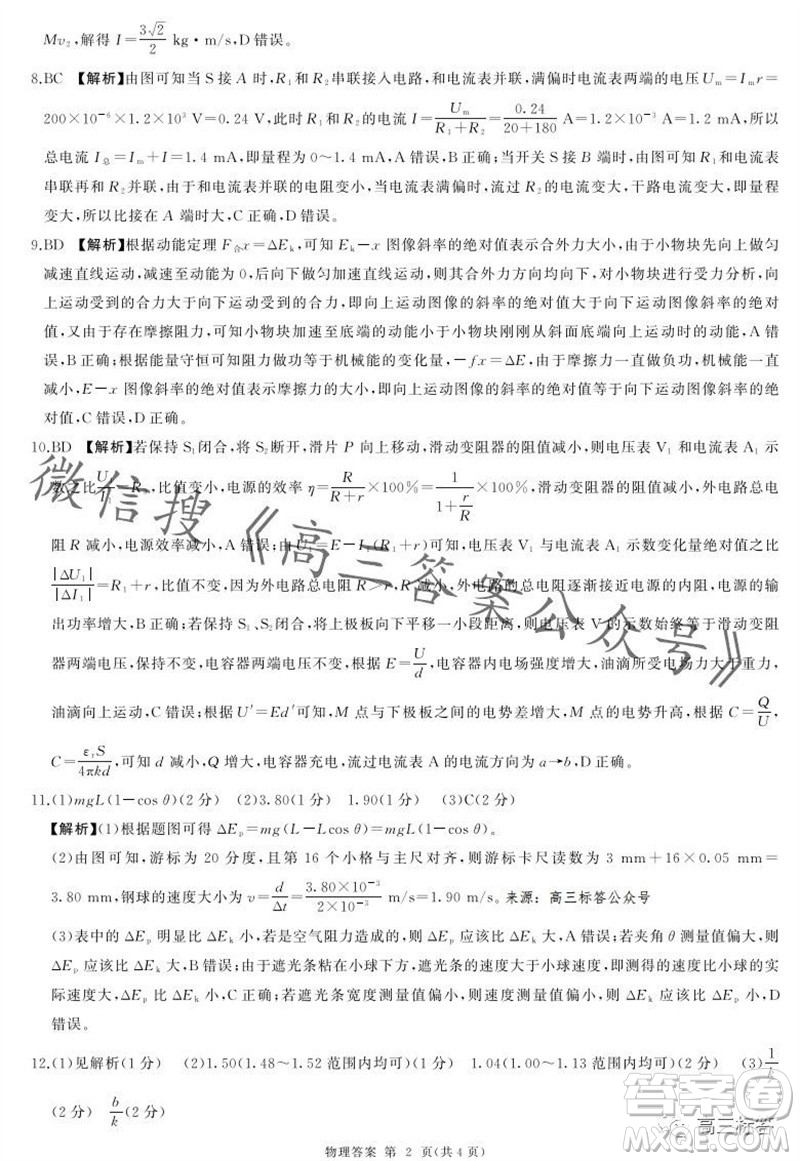 Mv₂,解得 I=3√2/2 kg·m/s,D 错误。
8.BC 【解析】由图可知当 S 接 A 时,R₁ 和 R₂ 串联接入电路,和电流表并联,满偏时电流表两端的电压 Uₘ=Iₘr=
200×10⁻⁶×1.2×10³ V=0.24 V,此时 R₁ 和 R₂ 的电流 I=Uₘ/(R₁+R₂)=0.24/(20+180) A=1.2×10⁻³ A=1.2 mA,所以
总电流 I总=Iₘ+I=1.4 mA,即量程为 0～1.4 mA,A 错误,B 正确;当开关 S 接 B 端时,由图可知 R₁和电流表
串联再和 R₂ 并联,由于和电流表并联的电阻变小,当电流表满偏时,流过 R₂ 的电流变大,干路电流变大,即量程
变大,所以比接在 A 端时大,C 正确,D 错误。
9.BD 【解析】根据动能定理 F合x=ΔEₖ,可知 Eₖ-x 图像斜率的绝对值表示合外力大小,由于小物块先向上做匀
减速直线运动,减速至动能为 0,后向下做匀加速运动,合外力方向均向下,对小物块进行受力分析,向
上运动受到的合力大于向下运动的合力,即向上运动图像的斜率的绝对值大于向下运动图像的斜率的绝对
值,又由于存在摩擦阻力,则小物块加速至底端的动能小于小物块刚刚从斜面底端向上运动的动能,A 错
误,B 正确;根据能量守恒可知阻力做功等于机械能的变化量,-fx=ΔE,由于摩擦力一直做负功,机械能一直
减小,E-x 图像斜率的绝对值表示摩擦力的大小,向上运动图像的斜率的绝对值等于向下运动图像的斜率的绝
对值,C 错误,D 正确。
10.BD 【解析】若保持 S₁闭合,将 S₂断开,滑片 P 向上移动,滑动变阻器的阻值减小,则电压表 V₁ 和电流表 A₁ 示
数之比 ,比值变小,电源的效率 η=R/(R+r)×100%=1/(1+r/R)×100%,滑动变阻器的阻值减小,外电路总电
阻 R 减小,电源效率减小,A 错误;由U₁=E-I₁(R₁+r)可知,电压表 V₁与电流表 A₁ 示数变化量绝对值之比
|ΔU₁|/|ΔI₁|=R₁+r,比值不变,因为外电路总电阻 R>r,R 减小,外电路的总电阻逐渐接近电源的内阻,电源的输
出功率增大,B 正确;若保持 S₁、S₂闭合,将电容器上板向下平移一小段距离,则电压表 V 的示数始终等于滑动变阻
器两端电压,保持不变,电容器两端电压不变,根据 E=U/d,电容器内电场强度增大,油滴所受电场力大于重力,
油滴向上运动,C 错误;根据 U′=Ed′可知,M 点与下极板之间的电势差增大,M 点的电势升高,根据 C=Q/U,
C=εᵣS/4πkd,可知 d 减小,Q 增大,电容器充电,流过电流表 A 的电流方向为 a→b,D 正确。
11.(1)mgL(1-cos θ)(2 分) (2)3.80(1 分) 1.90(1 分) (3)C(2 分)
【解析】(1)根据题图可得 ΔEₚ=mg(L-Lcos θ)=mgL(1-cos θ)。
(2)由图可知,游标为 20 分度,且第 16 个小格与主尺对齐,则游标卡尺读数为 3 mm+16×0.05 mm=
3.80 mm,钢球的速度大小为 v=d/Δt=3.80×10⁻³/2×10⁻³ m/s=1.90 m/s。来源:高三标答公众号
(3)表中的 ΔEₚ 明显比 ΔEₖ 小,若是空气阻力造成的,则 ΔEₚ 应该比 ΔEₖ 大,A 错误;若夹角 θ 测量值偏大,则
ΔEₚ 应该比 ΔEₖ 大,B 错误;由于遮光条粘在小球下方,遮光条的速度大于小球的速度,即测得的速度比小球的实
际速度大,ΔEₚ 应该比 ΔEₖ 小,C 正确;若遮光条宽度测量值偏小,则 ΔEₖ 应该比 ΔEₚ 小,D
错误。
12.(1)见解析(1 分) (2)1.50(1.48～1.52 范围内均可)(1 分) 1.04(1.00～1.13 范围内均可)(1 分) (3)1/k
(2 分) b/k(2 分)
物理答案 第 2 页(共 4 页)
微信搜《高三答案公众号》
高三标答
答案圈
MXQE.COM